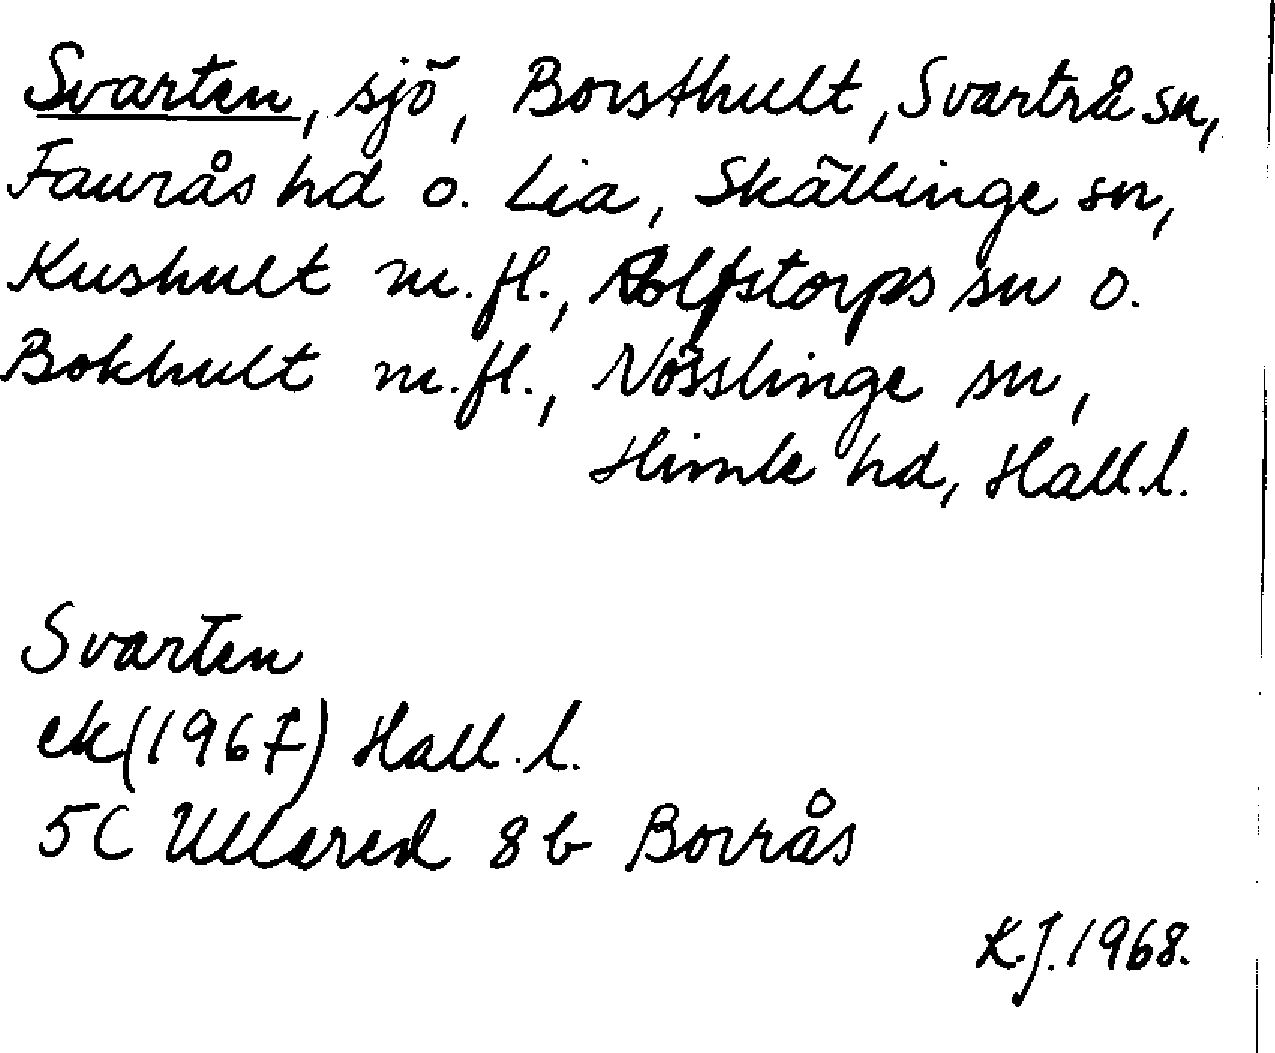 Svarten, sjö, Borsthult, Svartrå sn,
Faurås hd o. Lia, Skällinge sn,
Kushult m.fl., Rolfstorps sn o.
Bokhult m.fl., Nösslinge sn,
Himle hd, Hall.l.
Svarten
ek(1967) Hall.l.
5C Ullared 8b Borrås
K.J. 1968.